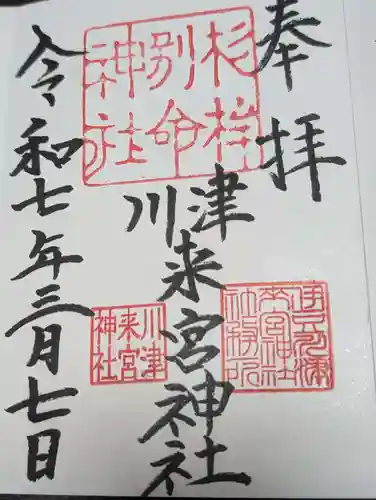 奉拝
川津来宮神社
令和七年三月七日
杉桙
別命
神社
川津
来宮
神社
来宮神社
社務所